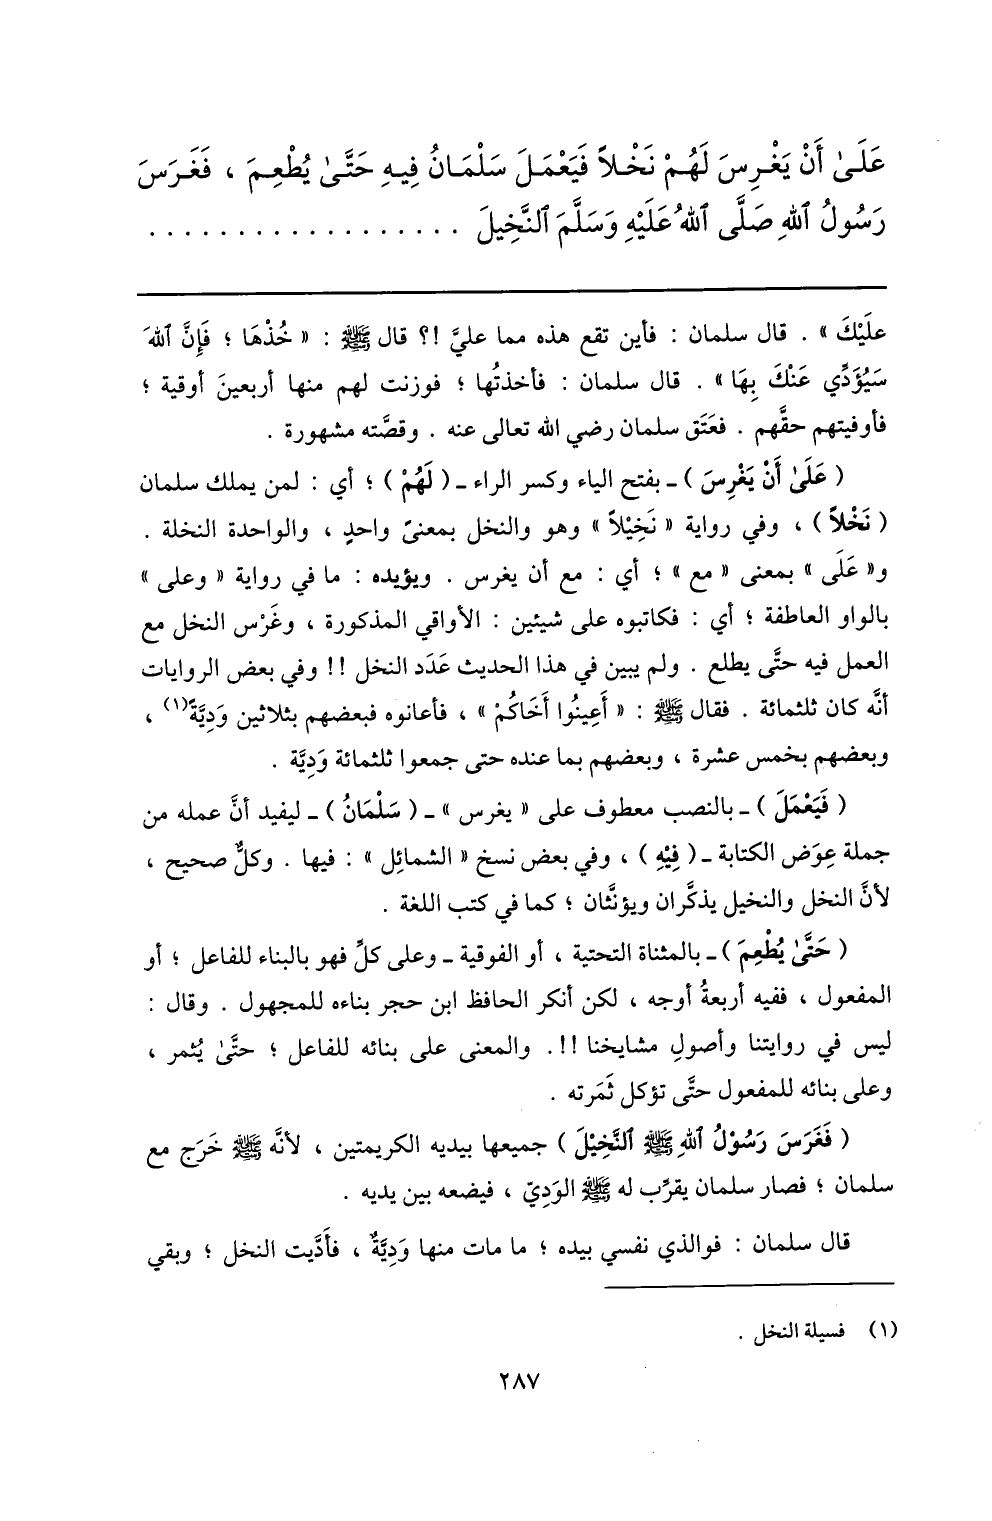 عَلَىٰ أَنْ يَغْرِسَ لَهُمْ نَخْلاً فَيَعْمَلَ سَلْمَانُ فِيهِ حَتَّىٰ يُطْعِمَ ، فَغَرَسَ
رَسُولُ ٱللهِ صَلَّى ٱللهُ عَلَيْهِ وَسَلَّمَ ٱلنَّخِيلَ . . . . . . . . . . . . . . . . .
علَيْكَ » . قال سلمان : فأين تقع هذه مما عليَّ !؟ قال ﷺ : « خُذْهَا ؛ فَإِنَّ ٱللهَ
سَيُؤَدِّي عَنْكَ بِهَا » . قال سلمان : فأخذتُها ؛ فوزنت لهم منها أربعينَ أوقية ؛
فأوفيتهم حقَّهم . فعَتَق سلمان رضي الله تعالى عنه . وقصَّته مشهورة .
( عَلَىٰ أَنْ يَغْرِسَ ) ـ بفتح الياء وكسر الراء ـ ( لَهُمْ ) ؛ أي : لمن يملك سلمان
( نَخْلاً ) ، وفي رواية « نَخِيْلاً » وهو والنخل بمعنىً واحدٍ ، والواحدة النخلة .
و« عَلَى » بمعنى « مع » ؛ أي : مع أن يغرس . ويؤيده : ما في رواية « وعلى »
بالواو العاطفة ؛ أي : فكاتبوه على شيئين : الأواقي المذكورة ، وغَرْس النخل مع
العمل فيه حتَّى يطلع . ولم يبين في هذا الحديث عَدَد النخل !! وفي بعض الروايات
أنَّه كان ثلثمائة . فقال ﷺ : « أَعِينُوا أَخَاكُمْ » ، فأعانوه فبعضهم بثلاثين وَدِيَّةً(١) ،
وبعضهم بخمس عشرة ، وبعضهم بما عنده حتى جمعوا ثلثمائة وَدِيَّة .
( فَيَعْمَلَ ) ـ بالنصب معطوف على « يغرس » ـ ( سَلْمَانُ ) ـ ليفيد أنَّ عمله من
جملة عِوَض الكتابة ـ ( فِيْهِ ) ، وفي بعض نسخ « الشمائل » : فيها . وكلٌّ صحيح ،
لأنَّ النخل والنخيل يذكَّران ويؤنَّثان ؛ كما في كتب اللغة .
( حَتَّىٰ يُطْعِمَ ) ـ بالمثناة التحتية ، أو الفوقية ـ وعلى كلٍّ فهو بالبناء للفاعل ؛ أو
المفعول ، ففيه أربعةُ أوجه ، لكن أنكر الحافظ ابن حجر بناءه للمجهول . وقال :
ليس في روايتنا وأصولِ مشايخنا !!. والمعنى على بنائه للفاعل ؛ حتَّىٰ يُثمر ،
وعلى بنائه للمفعول حتَّى تؤكل ثَمَرته .
( فَغَرَسَ رَسُوْلُ ٱللهِ ﷺ ٱلنَّخِيْلَ ) جميعها بيديه الكريمتين ، لأنَّه ﷺ خَرَج مع
سلمان ؛ فصار سلمان يقرِّب له ﷺ الوَدِيّ ، فيضعه بين يديه .
قال سلمان : فوالذي نفسي بيده ؛ ما مات منها وَدِيَّةٌ ، فأَدَّيت النخل ؛ وبقي
(١) فسيلة النخل .
٢٨٧